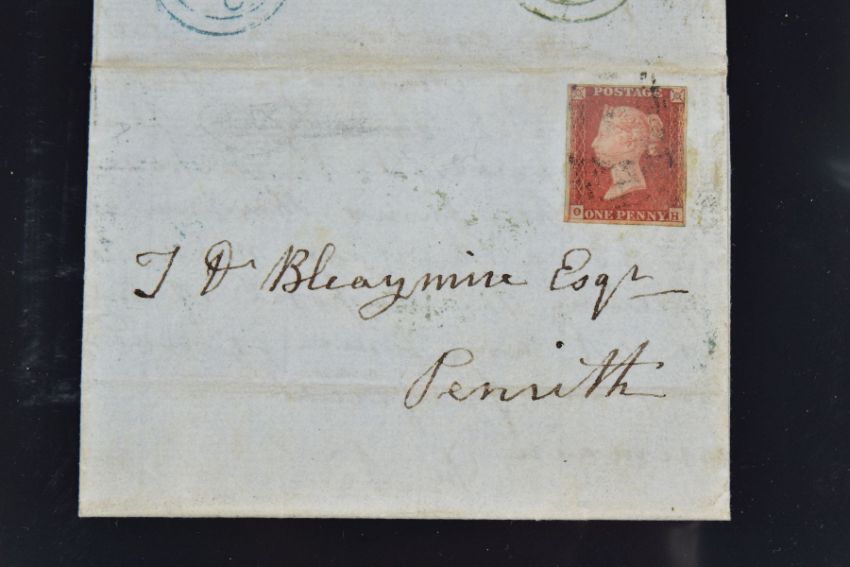 POSTAGE
ONE PENNY
O H
T Dr Bleaymire Esqr
Penrith